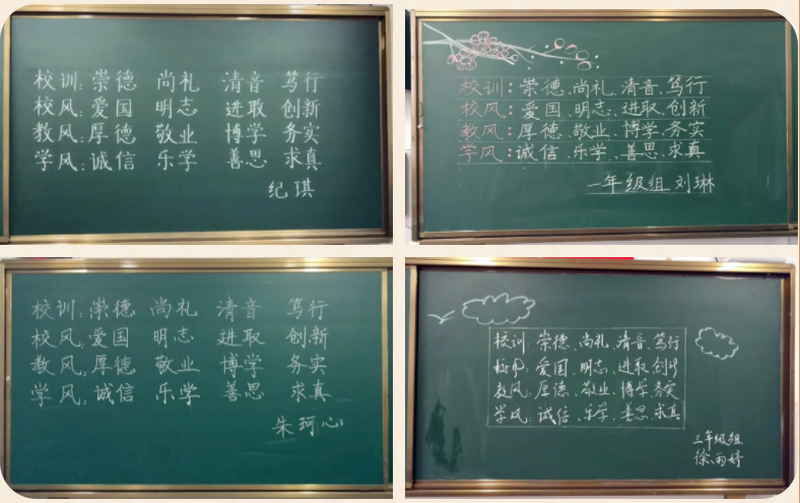 校训:崇德 尚礼 清音 笃行
校风:爱国 明志 进取 创新
教风:厚德 敬业 博学 务实
学风:诚信 乐学 善思 求真
纪琪
校训:崇德、尚礼、清音、笃行
校风:爱国、明志、进取、创新
教风:厚德、敬业、博学、务实
学风:诚信、乐学、善思、求真
一年级组 刘琳
校训:崇德 尚礼 清音 笃行
校风:爱国 明志 进取 创新
教风:厚德 敬业 博学 务实
学风:诚信 乐学 善思 求真
朱珂心
校训:崇德、尚礼、清音、笃行
校风:爱国、明志、进取、创新
教风:厚德、敬业、博学、务实
学风:诚信、乐学、善思、求真
三年级组
徐雨婷